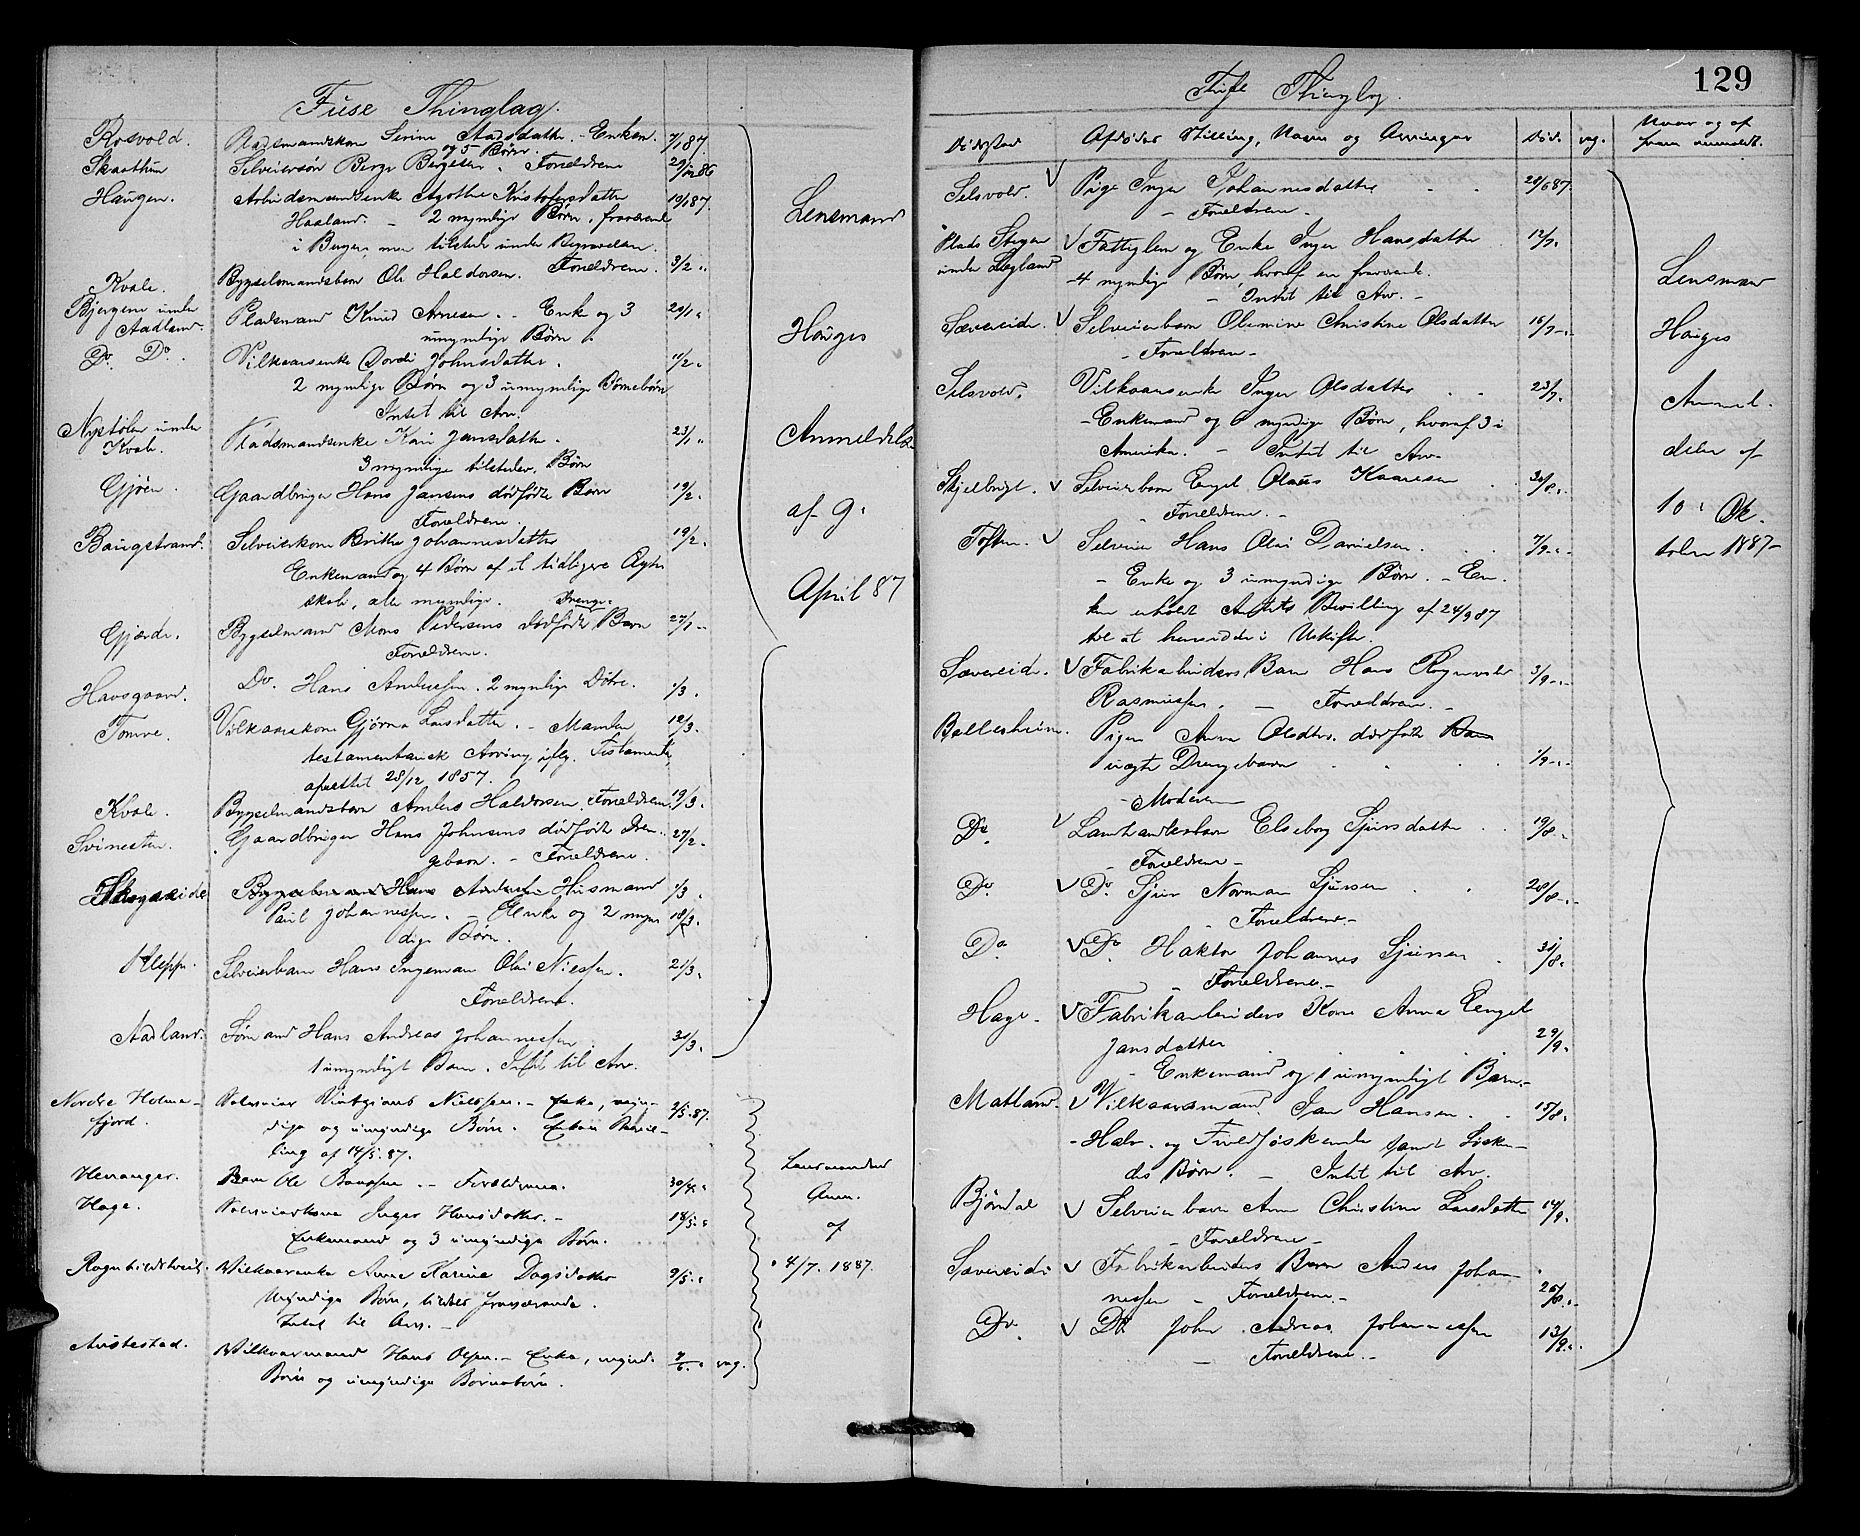 Fuse Thinglag.
Rosvold. Pladsmandskone Serine Aadsdatter. - Enkem. 7/1 87.
og 5 Børn.
Skaathun Selveiersøn Berge Bergesen. Forældrene 29/12 86
Haugen. Arbeidsmandsenke Agathe Kristofersdatter 19/1 87.
Haaland - 2 myndige Børn, fraværende
i Bergen, men tilstede under Begravelsen.
Kvale. Bygselmandsbarn Ole Haldorsen. Forældrene. 3/2 "
Bjergene under Pladsmand Knud Arnesen. - Enke og 3 29/1 "
Aadland. umyndige Børn.
Do. Do. Vilkaarsenke Dordi Johnsdatter. 11/2 "
2 myndige Børn og 3 umyndige Børnebørn
Intet til Arv.
Nystølen under Pladsmandsenke Kari Jansdatter. 23/1 "
Kvale. 3 myndige tilstedev. Børn
Gjøen. Gaardbruger Hans Jansens dødfødte Barn 19/2 "
Forældrene.
Baugstrand. Selveierkone Brithe Johannesdatter 19/2 "
Enkemand og 4 Børn af et tidligere Ægte
skab, alle myndige.
Drenge-
Gjærde. Bygselmand Mons Pedersens dødfødte Barn 27/1 "
Forældrene.
Havsgaard. Do. Hans Andersen. 2 myndige Døtre. 1/3 "
Tomre. Vilkaarskone Gjørna Larsdatter. - Manden 12/3 "
testamentarisk Arving iflg. Testamente,
oprettet 28/12 1857.
Kvale. Bygselmandsbarn Anders Haldorsen. Forældrene. 19/3 "
Svinesten Gaardbruger Hans Johnsens dødfødte Dren- 27/2 "
gebarn. - Forældrene.
Skogseide Bygselmand Hans Andersen Husmand 1/3 "
Paul Johannessen. - Enke og 2 myn 18/3 "
dige Børn.
Klepp. Selveierbarn Hans Ingeman Olai Nielsen. 21/3 "
Forældrene.
Aadland. Sømand Hans Andreas Johannessen. 30/3 "
1 umyndigt Barn. Intet til Arv.
Lensmand
Hauges
Anmeldelse
af 9.
April 87
Nordre Holme- Selveier Nielssen. - Enke, myn- 9/5 87.
fjord. dige og umyndige Børn. Enken Bevil-
ling af 14/5 87.
Henanger. Barn Ole Baardsen - Forældrene. 30/4 "
Hage. Selveierkone Inger Hansdatter. - 18/5 "
Enkemand og 3 umyndige Børn.
Ragnhildstveit. Vilkaarenke Anne Karine Dagsdatter 9/5 "
Myndige Børn, tildels fraværende.
Intet til Arv. -
Austestad. Vilkaarmand Hans Olsen. - Enke, mynd. 7/6 " vag.
Børn og umyndige Børnebørn.
Lensmandens
Anm.
af
4/7. 1887.
129
Fuse Thinglag.
Dødssted Afdødes Stilling, Navn og Arvinger Død. vag. Hvor og af
hvem anmeldt.
Selsvold. V Pige Inger Johannesdatter 20/6 87.
- Forældrene -
Plads Stegen V Fattiglem og Enke Inger Hansdatter 12/7 "
under Lygland - 4 myndige Børn, hvoraf en fraværende.
- Intet til Arv. -
Sævereide. V Selveierbarn Olemine Christine Olsdatter 16/7 "
- Forældrene -
Selsvold. Vilkaarsenke Inger Olsdatter 23/7 "
- Enkemand og 6 myndige Børn, hvoraf 3 i
Amerika. - Intet til Arv -
Skjelbrejt. V Selveierbarn Engel Olaus Kaaresen 30/8 "
- Forældrene. -
Toften. V Selveier Hans Olai Danielsen. 7/9 "
- Enke og 3 umyndige Børn. - En-
ken erholdt Amtets Bevilling af 24/9 87
til at hensidde i Uskifte.
Sævereid. V Fabrikarbeiders Barn Hans Rognvald 3/9 "
Rasmussen. - Forældrene. -
Ballesheim. Pigen Anna Olsdtrs. dødfødte Barn
uægte Drengebarn 1/9 "
- Moderen -
Do. V Landhandlerbarn Elseborg Sjursdatter 19/8 "
- Forældrene -
Do. V Do. Sjur Norman Sjursen 28/8 "
- Forældrene -
Do. V Do. Haktor Johannes Sjursen 30/8 "
- Forældrene. -
Hage. V Fabrikarbeiders Kone Anna Engel
Jansdatter 29/9 "
- Enkemand og 1 umyndigt Barn. -
Matland. V Vilkaarsmand Jan Hansen. 15/8 "
- Halv- og Fuldsøskende samt Søsken-
des Børn - Intet til Arv.
Bjørndal V Selveierbarn Anna Christine Larsdatter 14/9 "
- Forældrene -
Sævereide V Fabrikarbeiders Barn Anders Johan-
nessen - Forældrene. - 26/8 "
Do. V Do. John Andreas Johannessen 13/9 "
- Forældrene. -
Lensmand
Hauges
Anmel-
delse af
10. Ok-
tober 1887 -